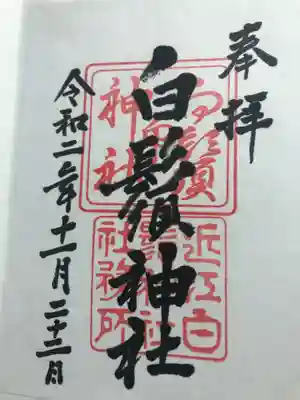 奉拝
白鬚神社
令和二年十一月二十三日
白鬚神社
近江白鬚神社社務所